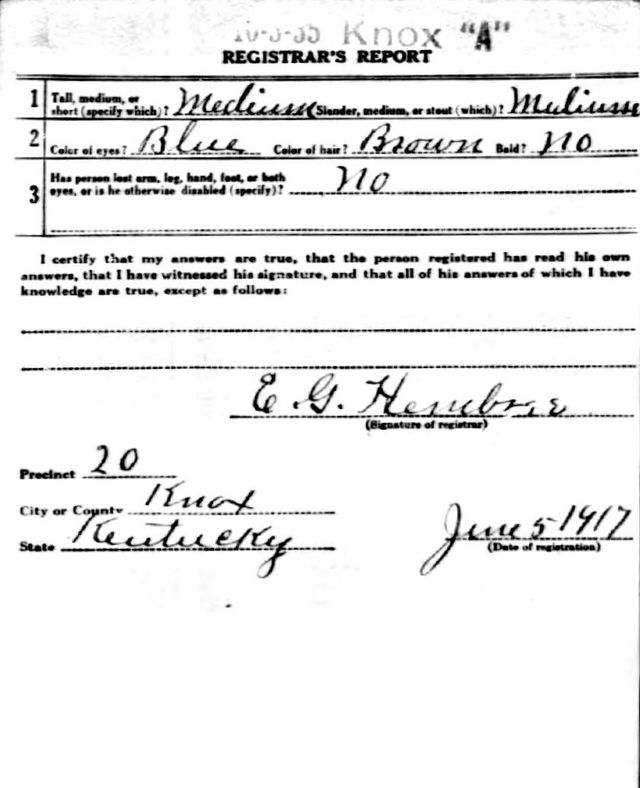 Knox "A"
REGISTRAR'S REPORT
1 Tall, medium, or short (specify which)? Medium Slender, medium, or stout (which)? Medium
2 Color of eyes? Blue Color of hair? Brown Bald? No
3 Has person lost arm, leg, hand, foot, or both
eyes, or is he otherwise disabled (specify)? No
I certify that my answers are true, that the person registered has read his own
answers, that I have witnessed his signature, and that all of his answers of which I have
knowledge are true, except as follows:
E. G.
(Signature of registrar)
Precinct 20
City or County Knox
State Kentucky
June 5 1917
(Date of registration)